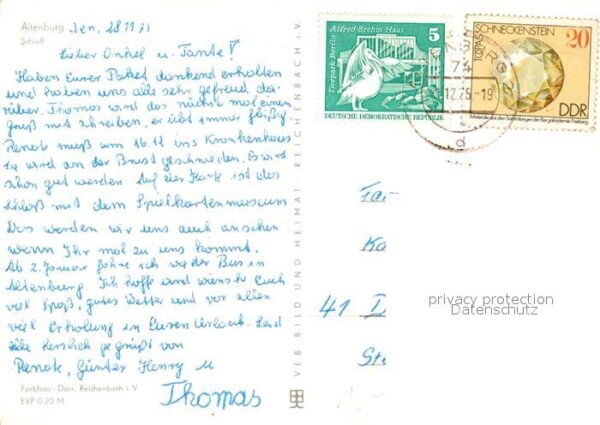 Altenburg den, 28.11.75
Schloß
Lieber Onkel u. Tante!
Haben Eurer Paket dankend erhalten
und haben uns alle sehr gefreut da-
rüber. Thomas wird das nächste mal einen
gruß mit schreiben, er übt immer fleißig
Renate muß am 16.12 ins Krankenhaus
sie wird an der Brust geschnieden. Es wird
schon gut werden Auf der Karte ist das
Schloß mit dem Spielkartenmuseum
Das werden wir uns auch ansehen
wenn Ihr mal zu uns kommt.
Ab 2. Januar fahre ich wieder Bus in
Altenburg. Ich hoffe und wünsche Euch
viel Spaß, gutes Wetter und vor allen
viel Erholung in Euren Urlaub. Seid
alle herzlich gegrüßt von
Renate, Günter Henry u
Thomas
Farbfoto: Darr, Reichenbach i. V.
EVP 0,20 M
VEB BILD UND HEIMAT REICHENBACH i. V.
Alfred-Brehm-Haus
5
Tierpark Berlin
DEUTSCHE DEMOKRATISCHE REPUBLIK
TOPAS
SCHNECKENSTEIN
20
DDR
Minerale aus den Sammlungen der Bergakademie Freiberg
74
1.12.75-19
d
Fa
Ka
41
St
privacy protection
Datenschutz